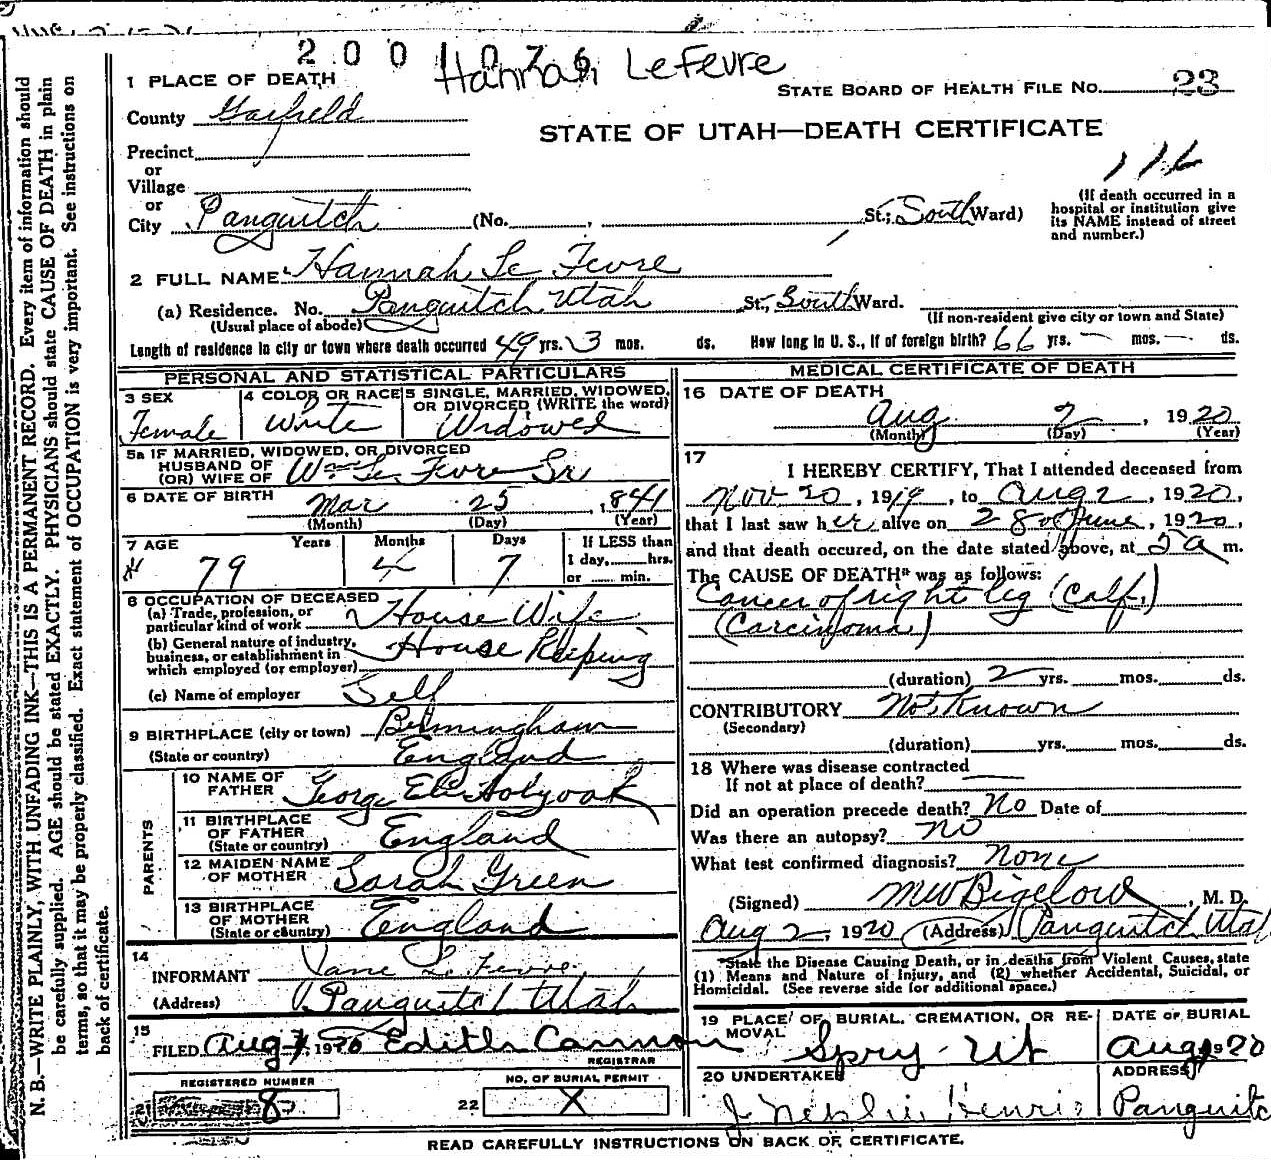 2001076
Hannah LeFevre
1 PLACE OF DEATH
STATE BOARD OF HEALTH FILE No. 23
County Garfield
STATE OF UTAH—DEATH CERTIFICATE
Precinct
116
or
Village
or
City Panguitch (No. , St.; South Ward)
(If death occurred in a
hospital or institution give
its NAME instead of street
and number.)
2 FULL NAME Hannah Le Fevre
(a) Residence. No. Panguitch Utah St., South Ward.
(Usual place of abode)
(If non-resident give city or town and State)
Length of residence in city or town where death occurred 49 yrs. 3 mos. ds. How long in U. S., if of foreign birth? 66 yrs. — mos. — ds.
PERSONAL AND STATISTICAL PARTICULARS
3 SEX
Female
4 COLOR OR RACE
White
5 SINGLE, MARRIED, WIDOWED,
OR DIVORCED (WRITE the word)
Widowed
5a IF MARRIED, WIDOWED, OR DIVORCED
HUSBAND OF
(OR) WIFE OF Wm Le Fevre Sr
6 DATE OF BIRTH
Mar 25, 1841
(Month) (Day) (Year)
7 AGE Years Months Days If LESS than
1 day, hrs.
or min.
79 4 7
8 OCCUPATION OF DECEASED
(a) Trade, profession, or
particular kind of work House Wife
(b) General nature of industry,
business, or establishment in
which employed (or employer) House Keeping
(c) Name of employer Self
9 BIRTHPLACE (city or town) Birmingham
(State or country) England
PARENTS
10 NAME OF
FATHER George Eli Holyoak
11 BIRTHPLACE
OF FATHER
(State or country) England
12 MAIDEN NAME
OF MOTHER Sarah Green
13 BIRTHPLACE
OF MOTHER
(State or country) England
14
INFORMANT Jane LeFevre
(Address) Panguitch Utah
15
FILED Aug 7, 1920 Edith Cannon
REGISTRAR
REGISTERED NUMBER
21 8
NO. OF BURIAL PERMIT
22 X
MEDICAL CERTIFICATE OF DEATH
16 DATE OF DEATH
Aug 2, 1920
(Month) (Day) (Year)
17
I HEREBY CERTIFY, That I attended deceased from
Nov 20, 1919, to Aug 2, 1920,
that I last saw her alive on 28 of June, 1920,
and that death occured, on the date stated above, at 5 a m.
The CAUSE OF DEATH* was as follows:
Cancer of right leg (Calf.)
(Carcinoma)
(duration) 2 yrs. mos. ds.
CONTRIBUTORY Not Known
(Secondary)
(duration) yrs. mos. ds.
18 Where was disease contracted
If not at place of death?
Did an operation precede death? No Date of
Was there an autopsy? no
What test confirmed diagnosis? None
(Signed) MW Bigelow, M. D.
Aug 2, 1920 (Address) Panguitch Utah
*State the Disease Causing Death, or in deaths from Violent Causes, state
(1) Means and Nature of Injury, and (2) whether Accidental, Suicidal, or
Homicidal. (See reverse side for additional space.)
19 PLACE OF BURIAL, CREMATION, OR RE-
MOVAL
Spry - Ut
DATE OF BURIAL
Aug 1920
20 UNDERTAKER
Henrie
ADDRESS
Panguitc
READ CAREFULLY INSTRUCTIONS ON BACK OF CERTIFICATE.
N. B.—WRITE PLAINLY, WITH UNFADING INK—THIS IS A PERMANENT RECORD. Every item of information should
be carefully supplied. AGE should be stated EXACTLY. PHYSICIANS should state CAUSE OF DEATH in plain
terms, so that it may be properly classified. Exact statement of OCCUPATION is very important. See instructions on
back of certificate.